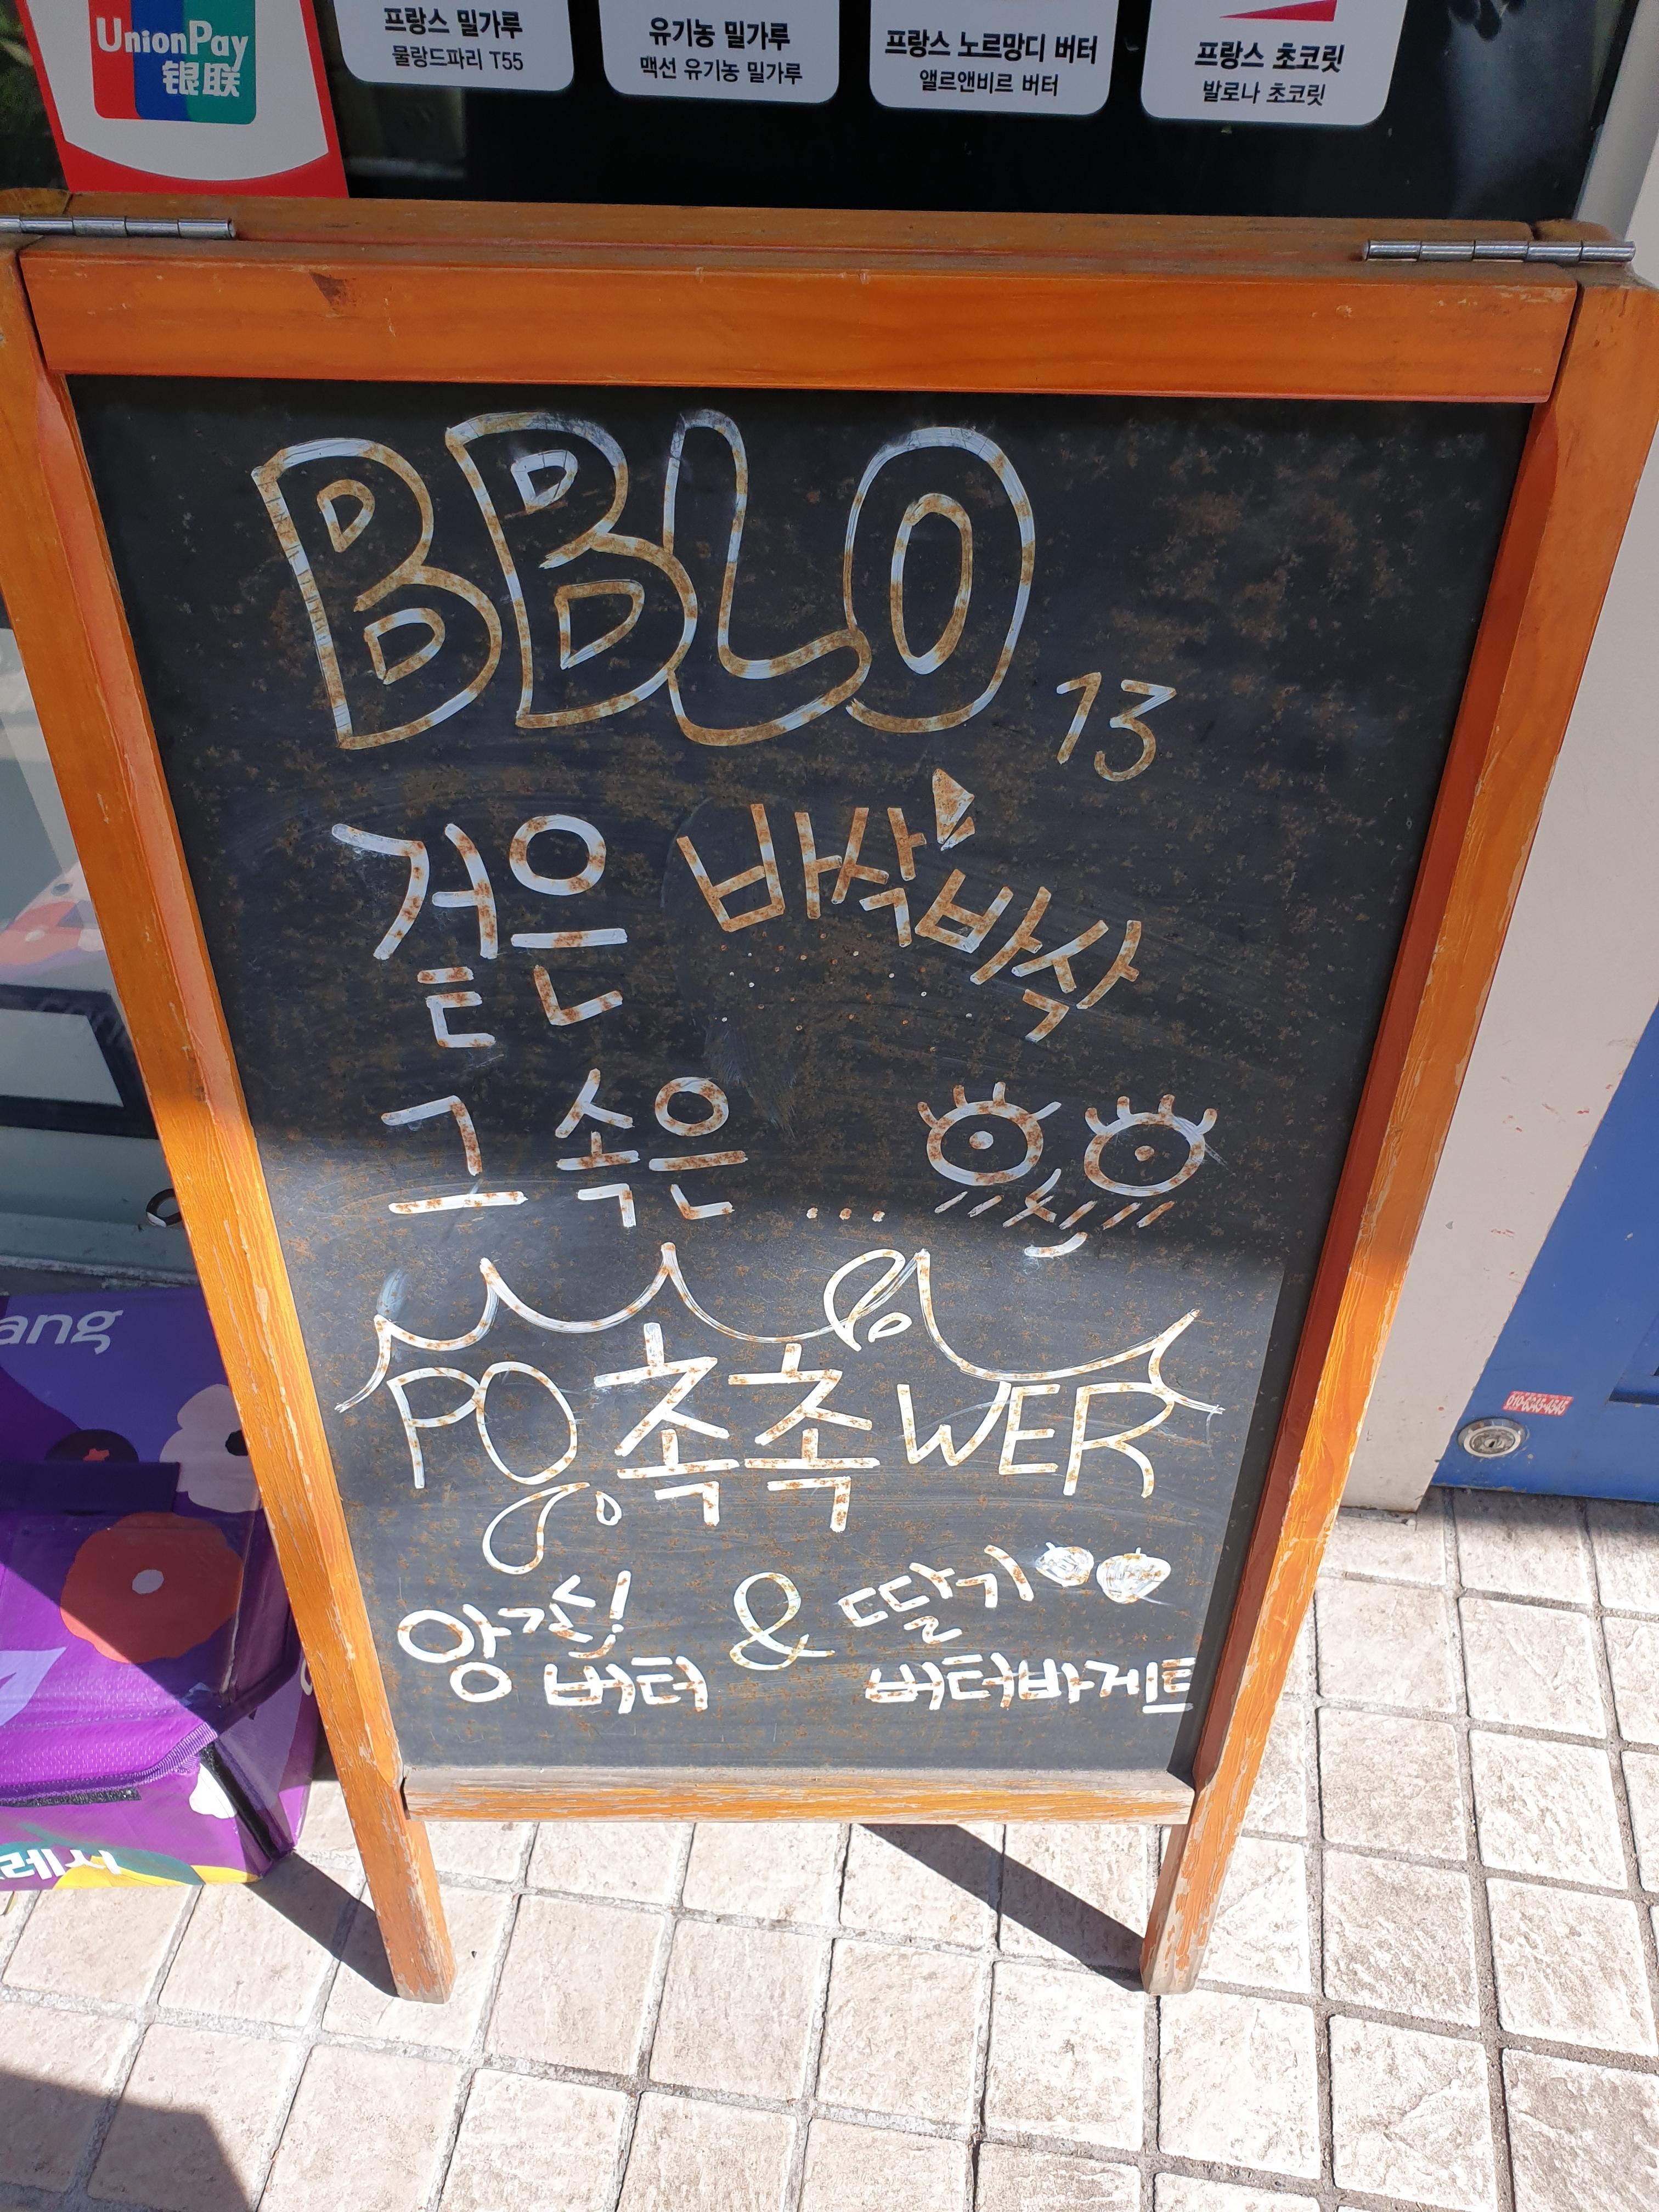 UnionPay
银联
프랑스 밀가루
물랑드파리 T55
유기농 밀가루
맥선 유기농 밀가루
프랑스 노르망디 버터
앨르앤비르 버터
프랑스 초코릿
발로나 초코릿
BBLO 13
겉은 바삭바삭
그 속은 ...
PO촉촉WER
앙버터 & 딸기
버터바게트
ang
레시
010-6345-4645